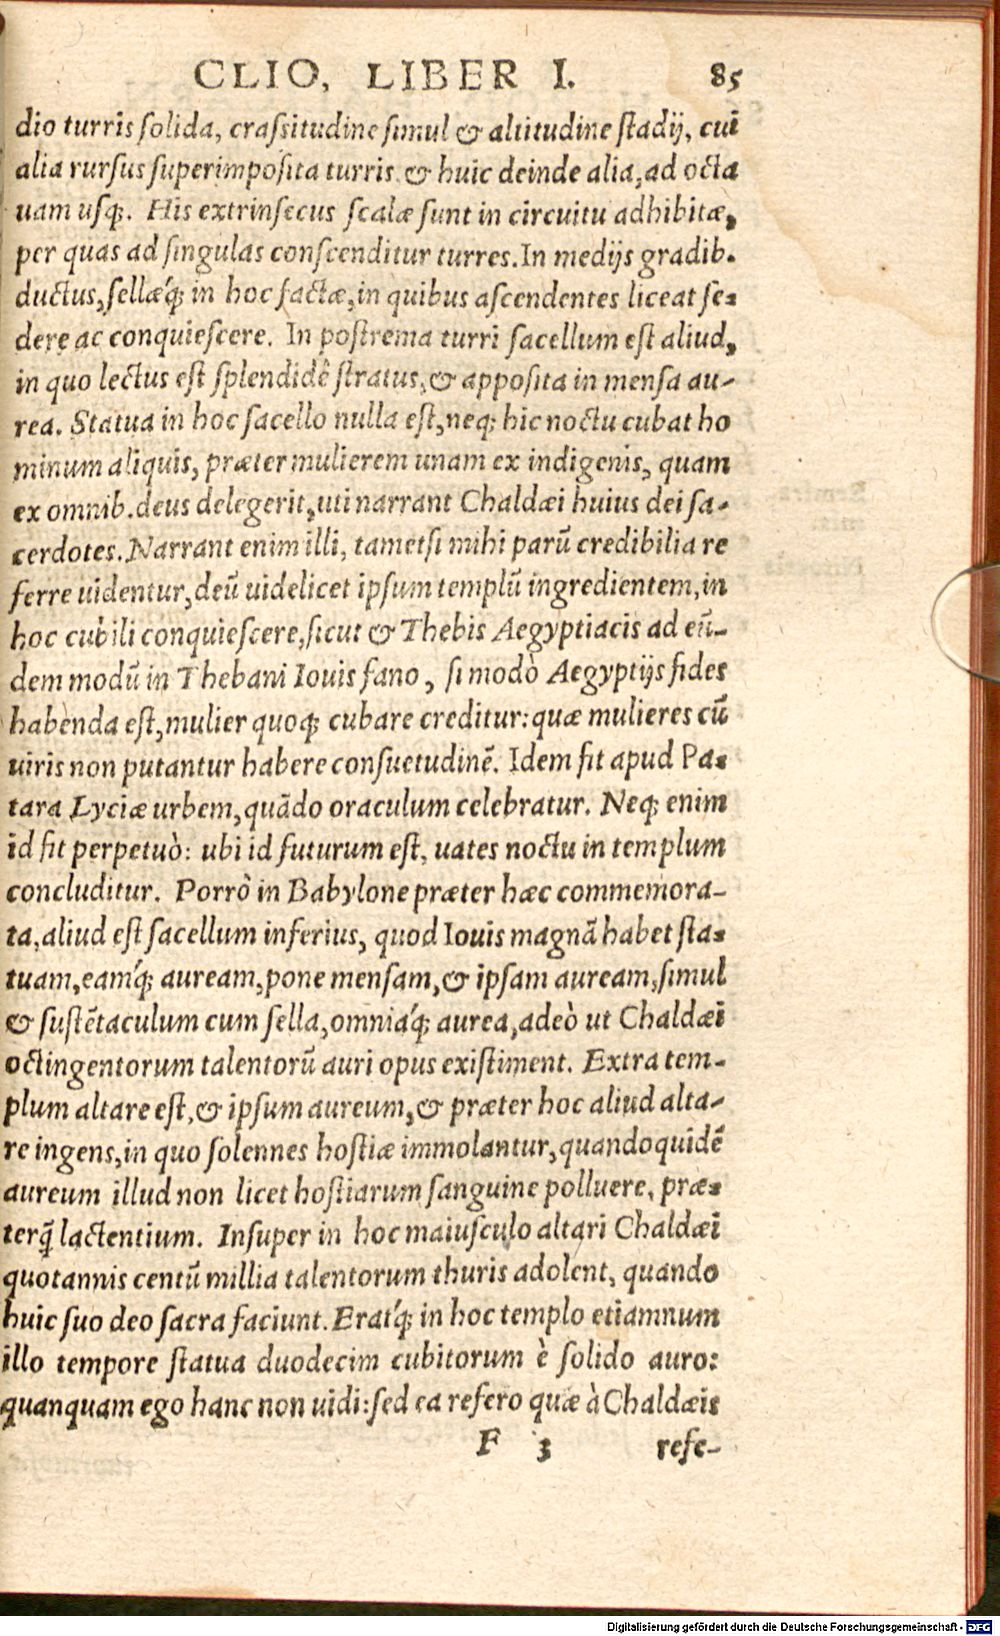 CLIO, LIBER I. 85
dio turris solida, crassitudine simul & altitudine stadij, cui
alia rursus superimposita turris & huic deinde alia, ad octa
uam usq;. His extrinsecus scalæ sunt in circuitu adhibitæ,
per quas ad singulas conscenditur turres. In medijs gradib.
ductus, sellæq́; in hoc factæ, in quibus ascendentes liceat se-
dere ac conquiescere. In postrema turri sacellum est aliud,
in quo lectus est splendidè stratus, & apposita in mensa au-
rea. Statua in hoc sacello nulla est, neq; hic noctu cubat ho
minum aliquis, præter mulierem unam ex indigenis, quam
ex omnib. deus delegerit, uti narrant Chaldæi huius dei sa-
cerdotes. Narrant enim illi, tametsi mihi parū credibilia re
ferre uidentur, deū uidelicet ipsum templū ingredientem, in
hoc cubili conquiescere, sicut & Thebis Aegyptiacis ad eū-
dem modū in Thebani Iouis fano, si modò Aegyptijs fides
habenda est, mulier quoq; cubare creditur: quæ mulieres cū
uiris non putantur habere consuetudinē. Idem fit apud Pa-
tara Lyciæ urbem, quādo oraculum celebratur. Neq; enim
id fit perpetuò: ubi id futurum est, uates noctu in templum
concluditur. Porrò in Babylone præter hæc commemora-
ta, aliud est sacellum inferius, quod Iouis magnā habet sta-
tuam, eamq́; auream, pone mensam, & ipsam auream, simul
& sustētaculum cum sella, omniaq́; aurea, adeò ut Chaldæi
octingentorum talentorū auri opus existiment. Extra tem-
plum altare est, & ipsum aureum, & præter hoc aliud alta-
re ingens, in quo solennes hostiæ immolantur, quandoquidē
aureum illud non licet hostiarum sanguine polluere, præ-
terq̄ lactentium. Insuper in hoc maiusculo altari Chaldæi
quotannis centū millia talentorum thuris adolent, quando
huic suo deo sacra faciunt. Eratq́; in hoc templo etiamnum
illo tempore statua duodecim cubitorum è solido auro:
quanquam ego hanc non uidi: sed ea refero quæ à Chaldæis
F 3 refe-
Digitalisierung gefördert durch die Deutsche Forschungsgemeinschaft - DFG